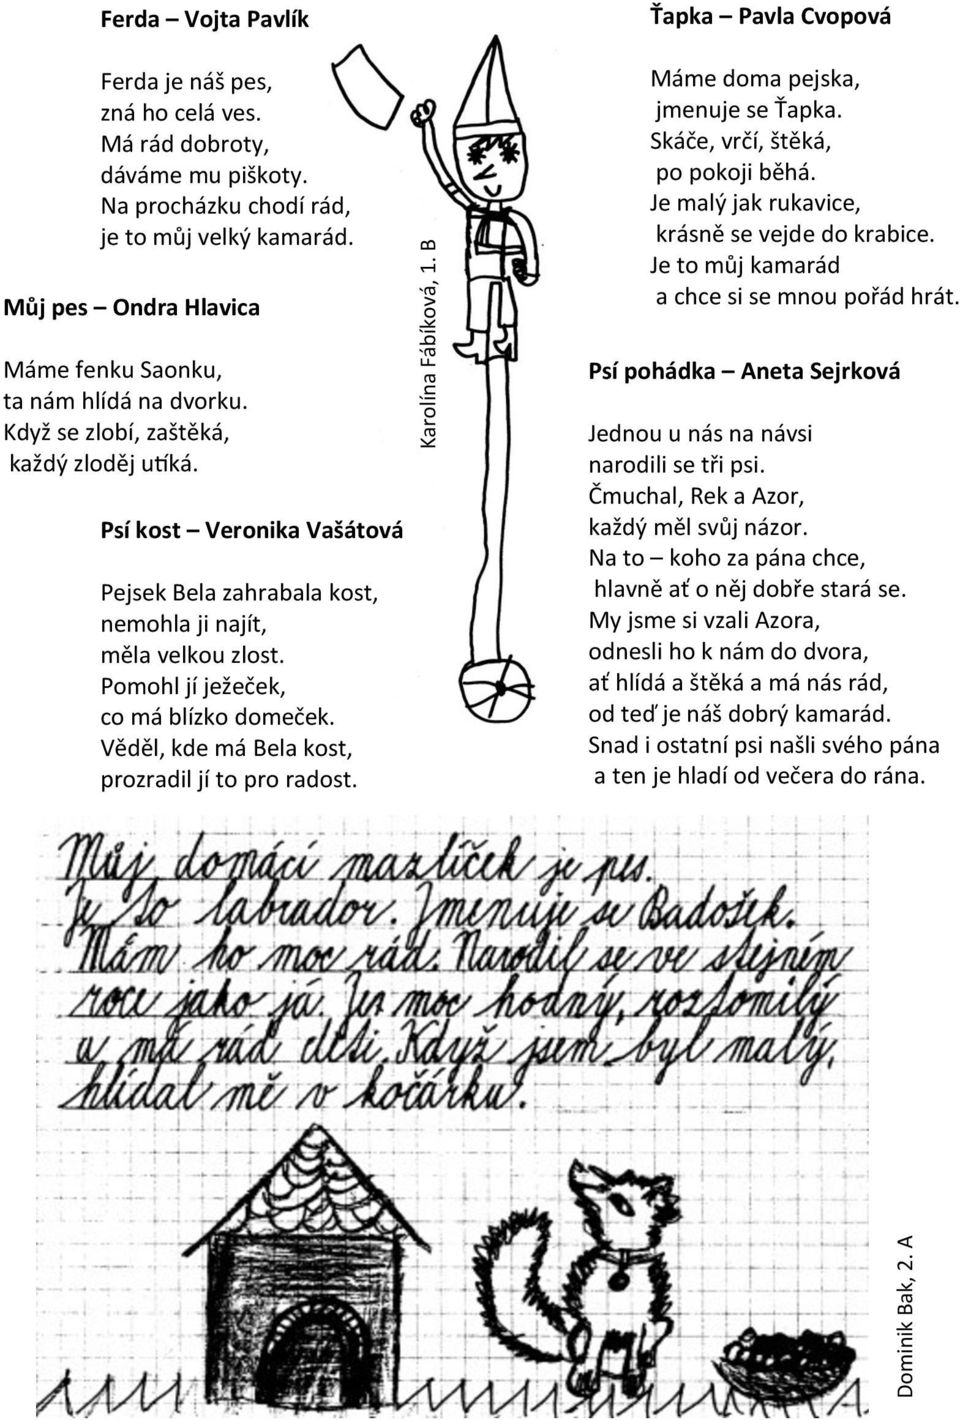 Ferda – Vojta Pavlík
Ferda je náš pes,
zná ho celá ves.
Má rád dobroty,
dáváme mu piškoty.
Na procházku chodí rád,
je to můj velký kamarád.
Můj pes – Ondra Hlavica
Máme fenku Saonku,
ta nám hlídá na dvorku.
Když se zlobí, zaštěká,
každý zloděj utíká.
Psí kost – Veronika Vašátová
Pejsek Bela zahrabala kost,
nemohla ji najít,
měla velkou zlost.
Pomohl jí ježeček,
co má blízko domeček.
Věděl, kde má Bela kost,
prozradil jí to pro radost.
Karolína Fábíková, 1. B
Ťapka – Pavla Cvopová
Máme doma pejska,
jmenuje se Ťapka.
Skáče, vrčí, štěká,
po pokoji běhá.
Je malý jak rukavice,
krásně se vejde do krabice.
Je to můj kamarád
a chce si se mnou pořád hrát.
Psí pohádka – Aneta Sejrková
Jednou u nás na návsi
narodili se tři psi.
Čmuchal, Rek a Azor,
každý měl svůj názor.
Na to – koho za pána chce,
hlavně ať o něj dobře stará se.
My jsme si vzali Azora,
odnesli ho k nám do dvora,
ať hlídá a štěká a má nás rád,
od teď je náš dobrý kamarád.
Snad i ostatní psi našli svého pána
a ten je hladí od večera do rána.
Můj domácí mazlíček je pes.
Je to labrador. Jmenuje se Badošek.
Mám ho moc rád. Narodil se ve stejném
roce jako já. Je moc hodný, roztomilý
a má rád děti. Když jsem byl malý,
hlídal mě v kočárku.
Dominik Bak, 2. A